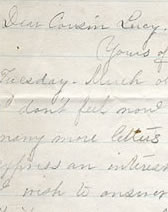 Dear Cousin Lucy.
Yours of
Tuesday. Much o
I don't feel now
many more letters
express an interes
I wish to answer